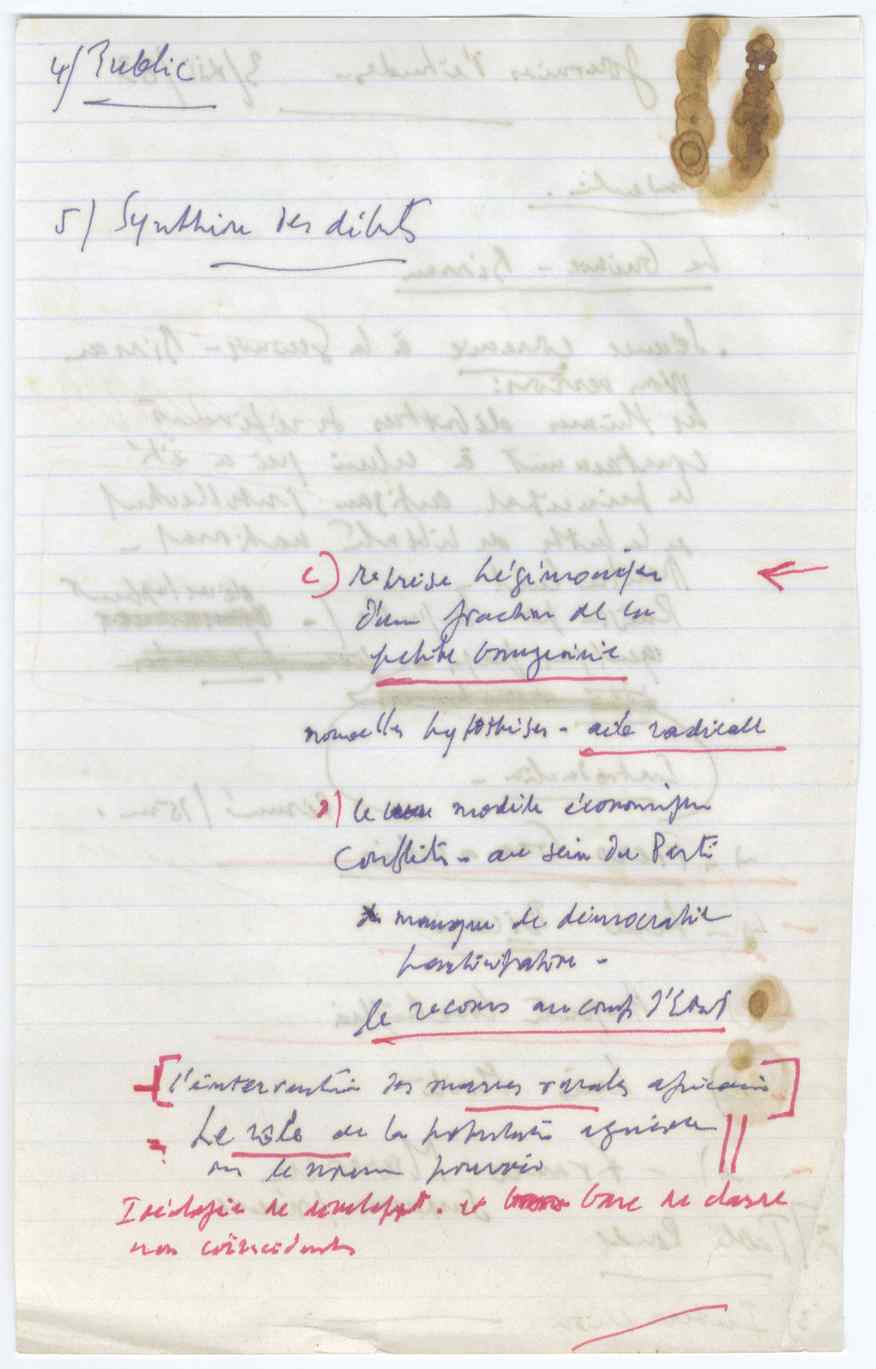 4/ Public
5/ Synthèse des débats
c) reprise hégémonique
d'une fraction de la
petite bourgeoisie
nouvelles hypothèses - aile radicale
le modèle économique
Conflits - au sein du Parti
manque de démocratie
participative -
le recours au coup d'Etat
[l'intervention des masses rurales africaines]
- Le rôle de la population agricole
le nouveau pouvoir
Idéologie de developpt. et base de classe
non coïncidents